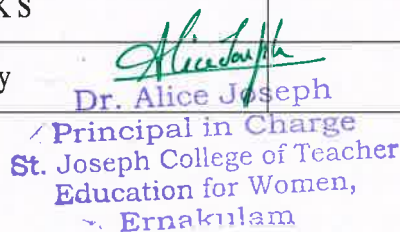 K S
y
Alice Joseph
Dr. Alice Joseph
Principal in Charge
St. Joseph College of Teacher
Education for Women,
Ernakulam